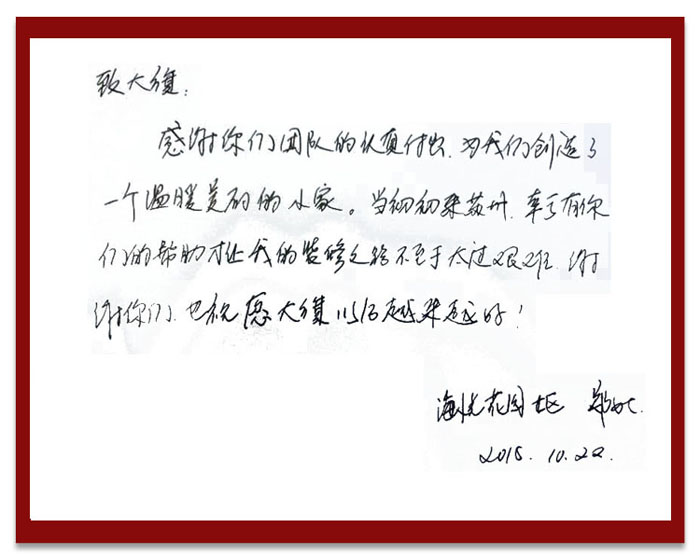 致大集:
感谢你们团队的认真付出,为我们创造了
一个温暖美好的小家。当初初来苏州,幸亏有你
们的帮助才让我的装修之路不至于太过艰难,谢
谢你们,也祝愿大集以后越来越好!
花园 郑
2015.10.22.